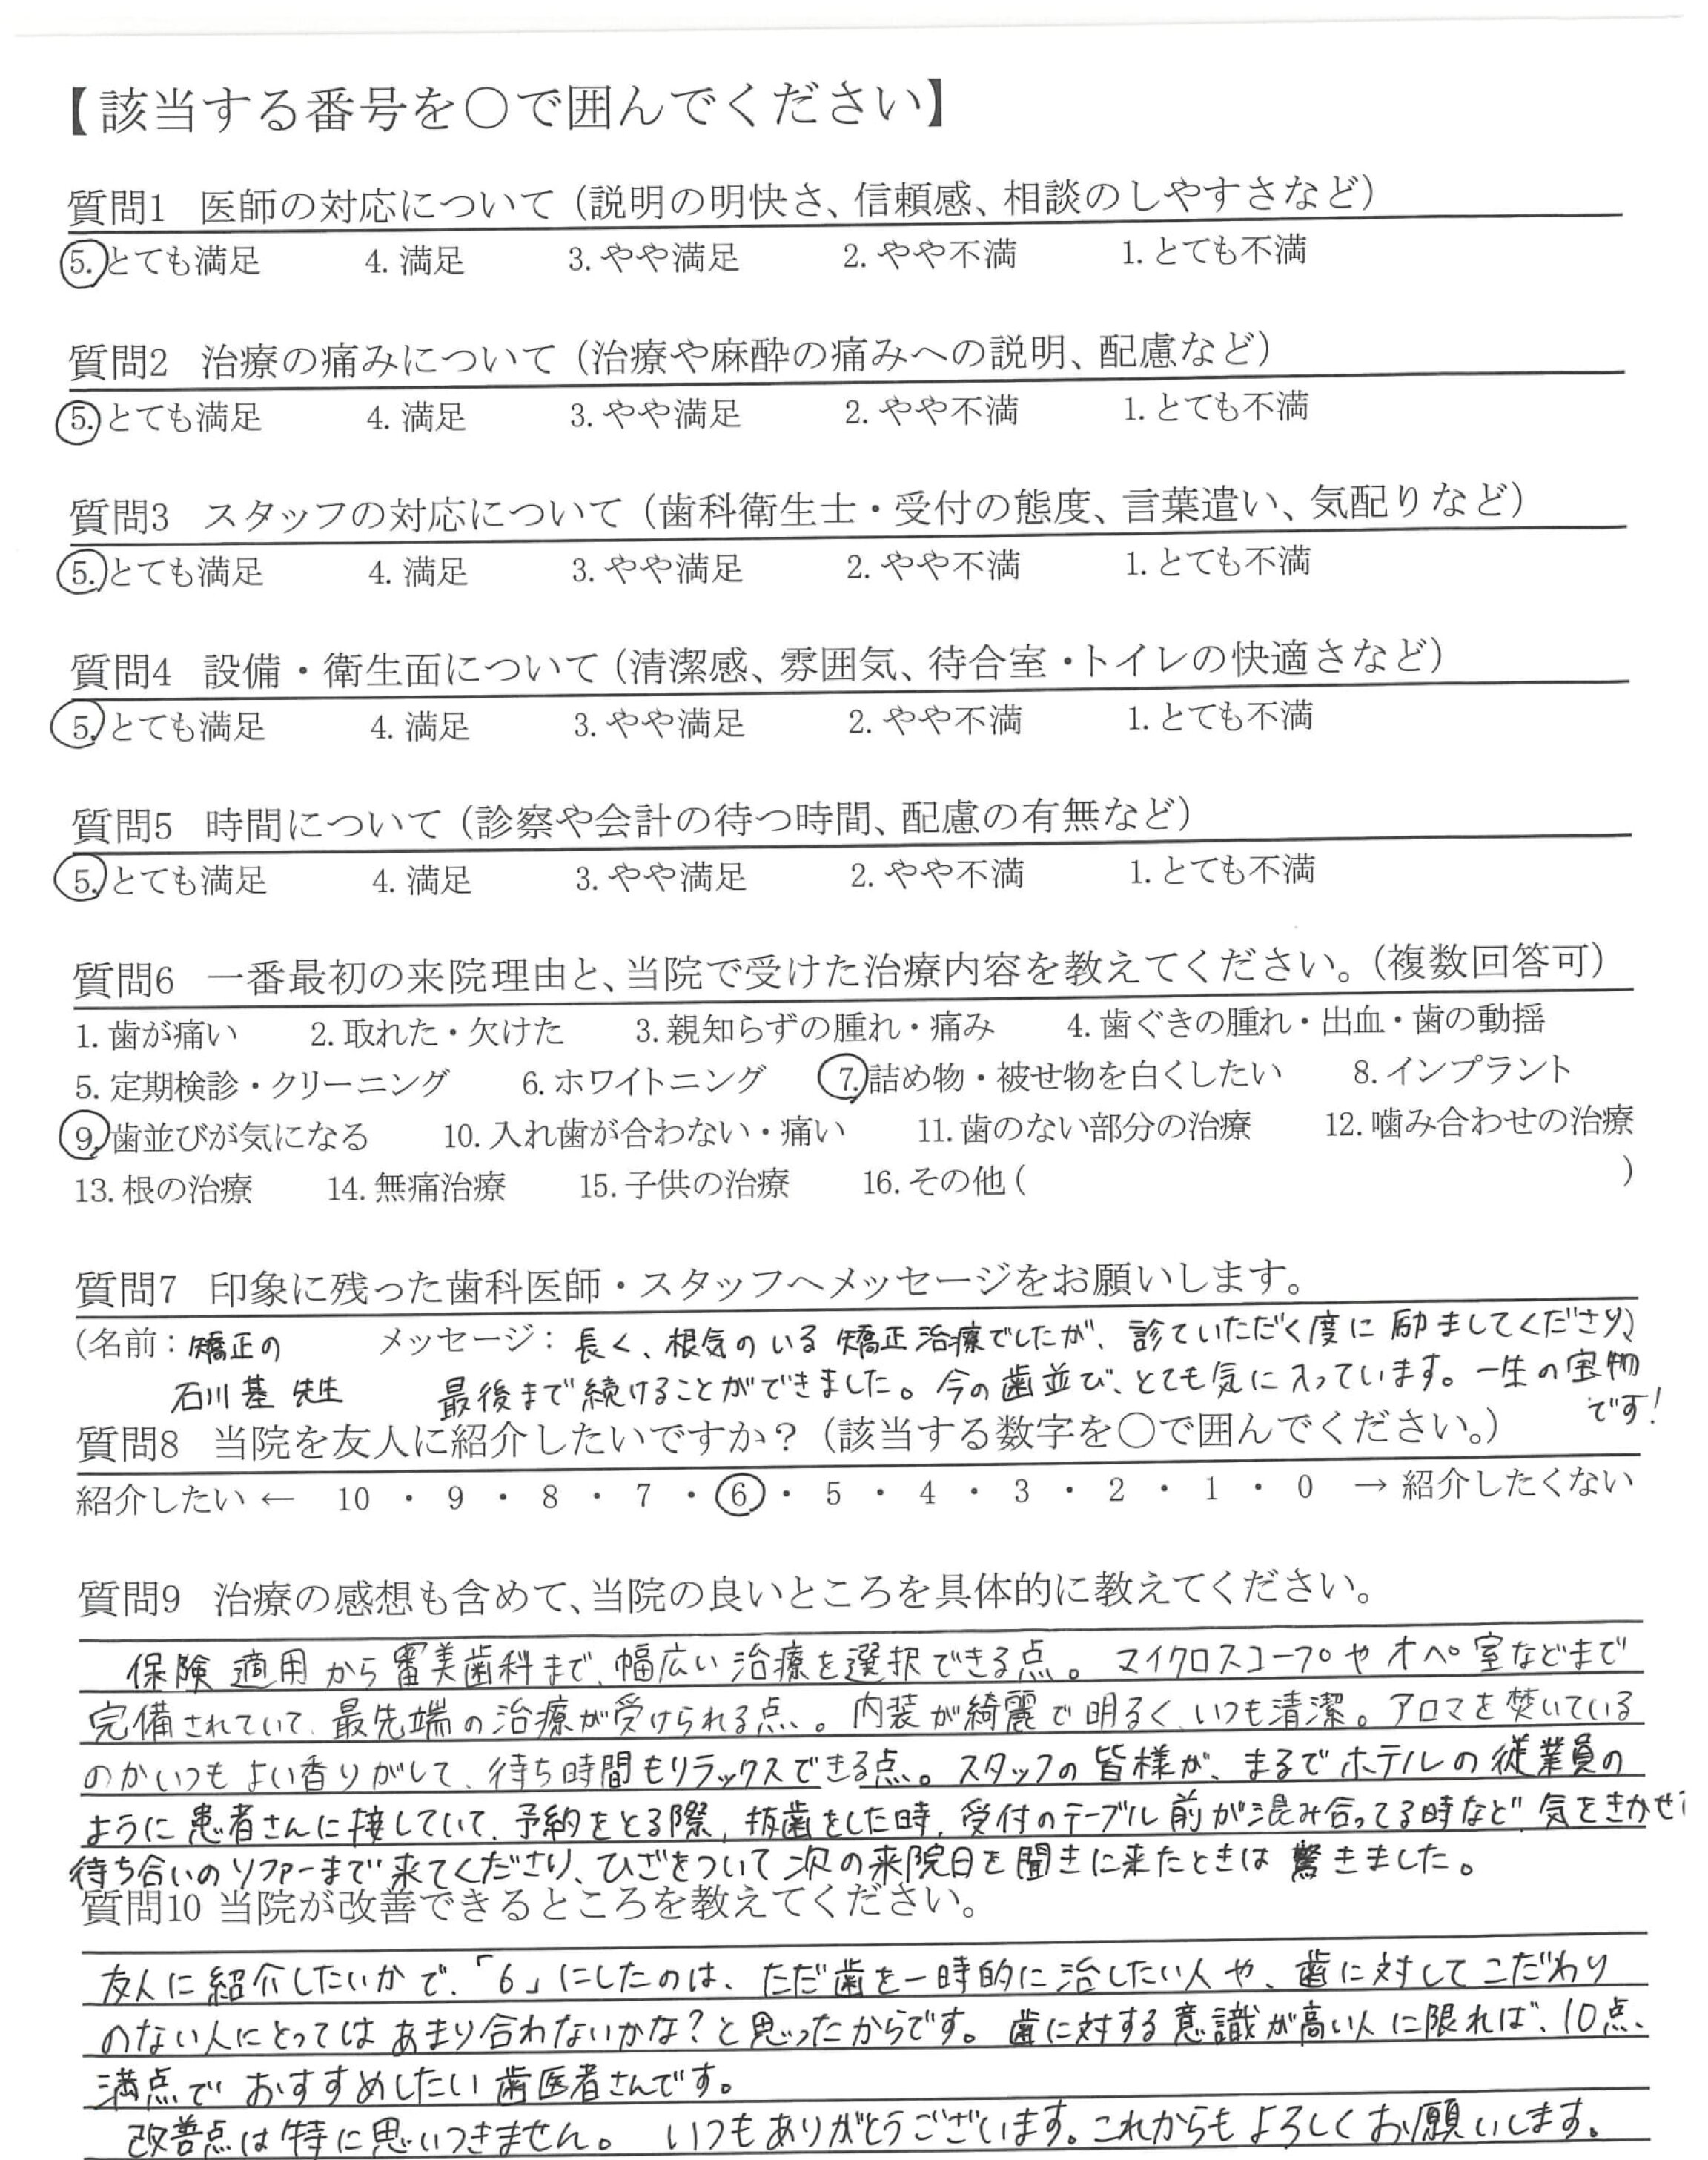 【該当する番号を○で囲んでください】
質問1 医師の対応について（説明の明快さ、信頼感、相談のしやすさなど）
5. とても満足 4. 満足 3. やや満足 2. やや不満 1. とても不満
質問2 治療の痛みについて（治療や麻酔の痛みへの説明、配慮など）
5. とても満足 4. 満足 3. やや満足 2. やや不満 1. とても不満
質問3 スタッフの対応について（歯科衛生士・受付の態度、言葉遣い、気配りなど）
5. とても満足 4. 満足 3. やや満足 2. やや不満 1. とても不満
質問4 設備・衛生面について（清潔感、雰囲気、待合室・トイレの快適さなど）
5. とても満足 4. 満足 3. やや満足 2. やや不満 1. とても不満
質問5 時間について（診察や会計の待つ時間、配慮の有無など）
5. とても満足 4. 満足 3. やや満足 2. やや不満 1. とても不満
質問6 一番最初の来院理由と、当院で受けた治療内容を教えてください。（複数回答可）
1. 歯が痛い 2. 取れた・欠けた 3. 親知らずの腫れ・痛み 4. 歯ぐきの腫れ・出血・歯の動揺
5. 定期検診・クリーニング 6. ホワイトニング 7. 詰め物・被せ物を白くしたい 8. インプラント
9. 歯並びが気になる 10. 入れ歯が合わない・痛い 11. 歯のない部分の治療 12. 噛み合わせの治療
13. 根の治療 14. 無痛治療 15. 子供の治療 16. その他（ ）
質問7 印象に残った歯科医師・スタッフへメッセージをお願いします。
（名前：矯正の メッセージ：長く、根気のいる矯正治療でしたが、診ていただく度に励ましてくださり、）
石川基先生 最後まで続けることができました。今の歯並び、とても気に入っています。一生の宝物
です！
質問8 当院を友人に紹介したいですか？（該当する数字を○で囲んでください。）
紹介したい ← 10 ・ 9 ・ 8 ・ 7 ・ 6 ・ 5 ・ 4 ・ 3 ・ 2 ・ 1 ・ 0 → 紹介したくない
質問9 治療の感想も含めて、当院の良いところを具体的に教えてください。
保険適用から審美歯科まで、幅広い治療を選択できる点。マイクロスコープやオペ室などまで
完備されていて、最先端の治療が受けられる点。内装が綺麗で明るく、いつも清潔。アロマを焚いている
のかいつもよい香りがして、待ち時間もリラックスできる点。スタッフの皆様が、まるでホテルの従業員の
ように患者さんに接していて、予約をとる際、抜歯をした時、受付のテーブル前が混み合ってる時など、気をきかせて
待ち合いのソファーまで来てくださり、ひざをついて次の来院日を聞きに来たときは驚きました。
質問10 当院が改善できるところを教えてください。
友人に紹介したいかで、「6」にしたのは、ただ歯を一時的に治したい人や、歯に対してこだわり
のない人にとってはあまり合わないかな？と思ったからです。歯に対する意識が高い人に限れば、10点、
満点でおすすめしたい歯医者さんです。
改善点は特に思いつきません。 いつもありがとうございます。これからもよろしくお願いします。